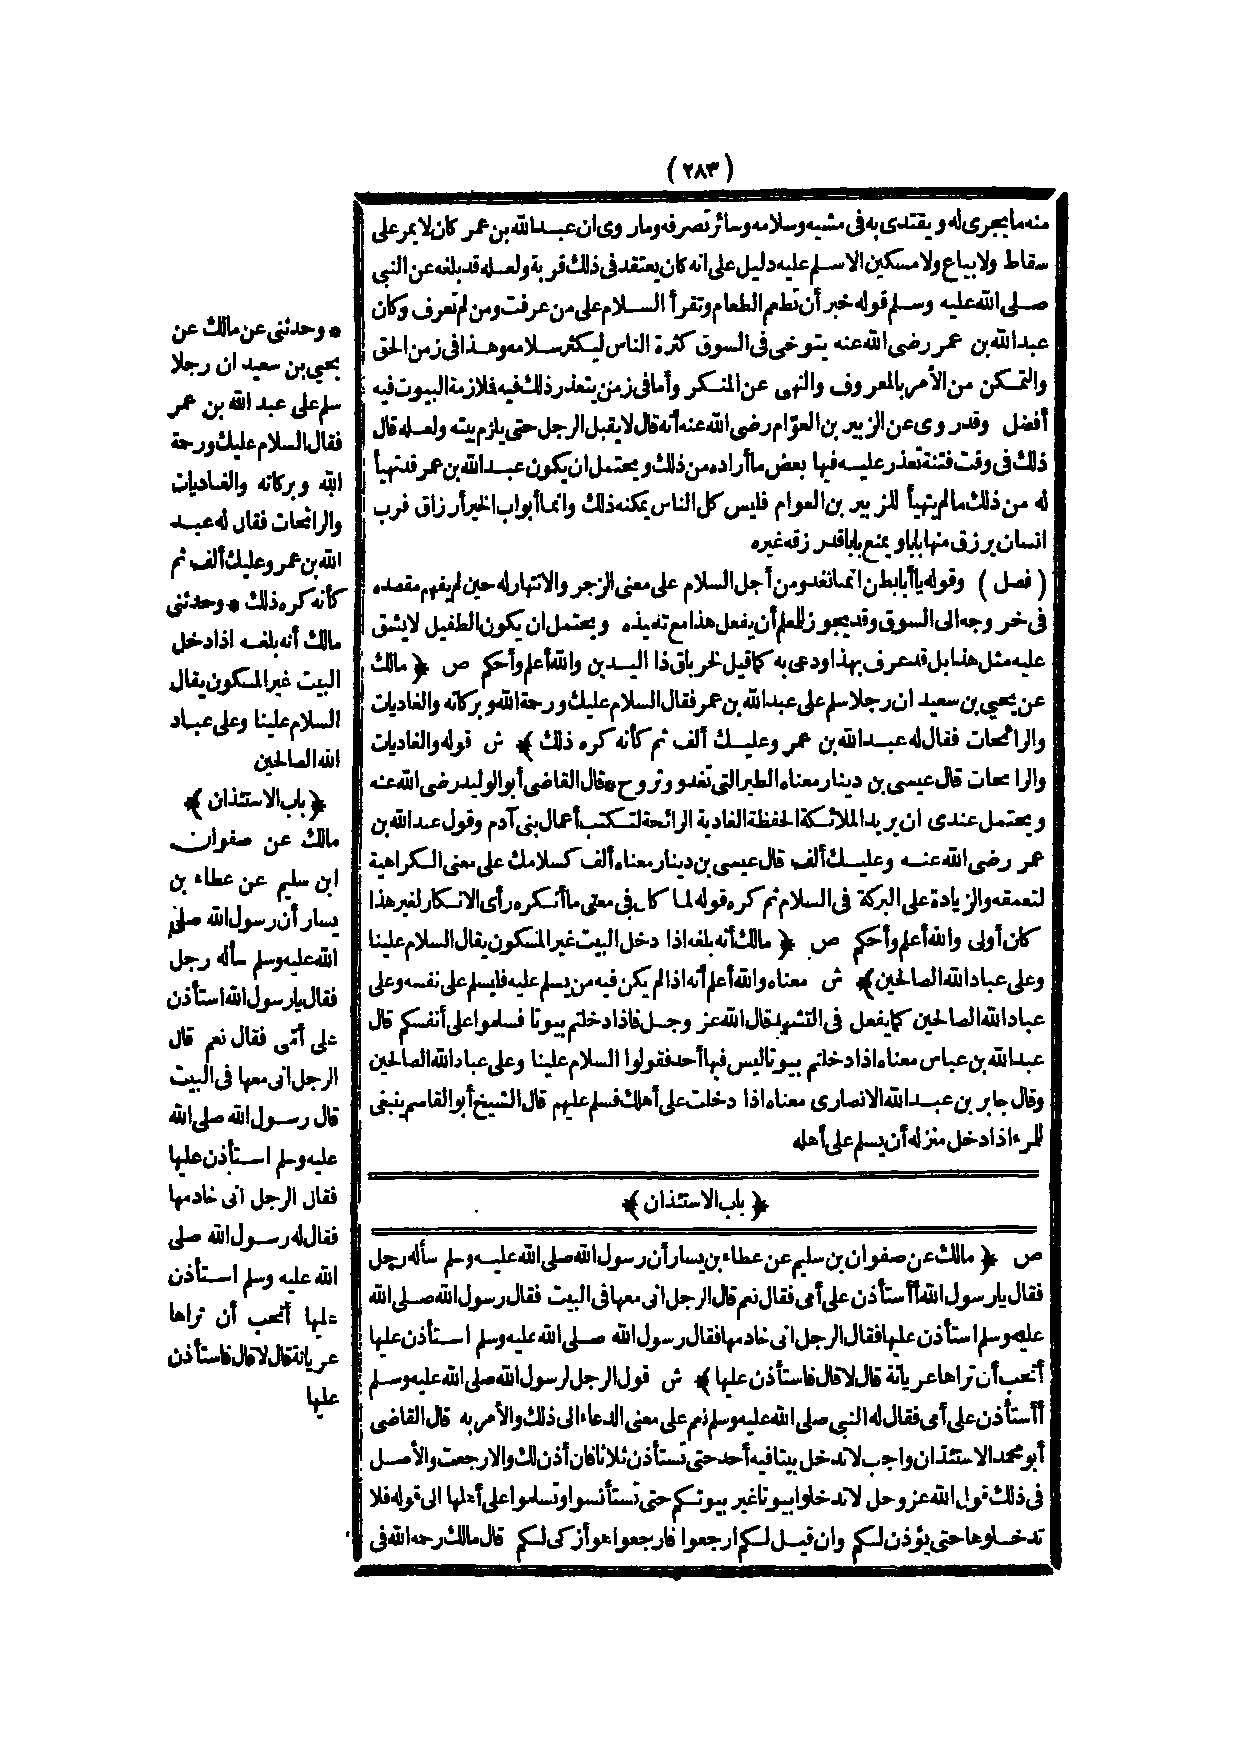 (٢٨٣)
منه ما يجرى له ويقتدى به فى مشيه وسلامه وسائر تصرفه وما روى ان عبد الله بن عمر كان لا يمر على
سقاط ولا بياع ولا مسكين الا سلم عليه دليل على انه كان يعتقد فى ذلك قربة ولعله قد بلغه عن النبى
صلى الله عليه وسلم قوله خبر أن تطعم الطعام وتقرأ السلام على من عرفت ومن لم تعرف وكان
عبد الله بن عمر رضى الله عنه يتوخى فى السوق كثرة الناس ليكثر سلامه وهذا فى زمن الحق
والتمكن من الأمر بالمعروف والنهى عن المنكر وأما فى زمن يتعذر ذلك فيه فلازمة البيوت فيه
أفضل وقد روى عن الزبير بن العوّام رضى الله عنه أنه قال لا يقبل الرجل حتى يلزم بيته ولعله قال
ذلك فى وقت فتنة تعذر عليه فيها بعض ما أراده من ذلك ويحتمل ان يكون عبد الله بن عمر قد تهيأ
له من ذلك ما لم يتهيأ للزبير بن العوام فليس كل الناس يمكنه ذلك وانما أبواب الخير أرزاق فرب
انسان يرزق منها بابا ويمنع بابا قد رزقه غيره
(فصل) وقوله يا أبا بطن انما نغدو من أجل السلام على معنى الزجر والانتهار له حين لم يفهم مقصده
فى خروجه الى السوق وقد يجوز للعلم أن يفعل هذا مع تلميذه ويحتمل ان يكون الطفيل لا يشق
عليه مثل هذا بل قد عرف بهذا ودعى به كما قيل لخرباق ذا اليدين والله أعلم وأحكم ص ﴿ مالك
عن يحيى بن سعيد ان رجلا سلم على عبد الله بن عمر فقال السلام عليك ورحمة الله وبركاته والغاديات
والرائحات فقال له عبد الله بن عمر وعليك ألف ثم كأنه كره ذلك ﴾ ش قوله والغاديات
والرائحات قال عيسى بن دينار معناه الطير التى تغدو وتروح * قال القاضى أبو الوليد رضى الله عنه
ويحتمل عندى ان يريد الملائكة الحفظة الغادية الرائحة لتكتب أعمال بنى آدم وقول عبد الله بن
عمر رضى الله عنه وعليك ألف قال عيسى بن دينار معناه ألف كسلامك على معنى الكراهية
لتعمقه والزيادة على البركة فى السلام ثم كره قوله لما كان فى معنى ما أنكره رأى الانكار لغير هذا
كان أولى والله أعلم وأحكم ص ﴿ مالك أنه بلغه اذا دخل البيت غير المسكون يقال السلام علينا
وعلى عباد الله الصالحين ﴾ ش معناه والله أعلم أنه اذا لم يكن فيه من يسلم عليه فليسلم على نفسه وعلى
عباد الله الصالحين كما يفعل فى التشهد قال الله عز وجل فاذا دخلتم بيوتا فسلموا على أنفسكم قال
عبد الله بن عباس معناه اذا دخلتم بيوتا ليس فيها أحد فقولوا السلام علينا وعلى عباد الله الصالحين
وقال جابر بن عبد الله الانصارى معناه اذا دخلت على أهلك فسلم عليهم قال الشيخ أبو القاسم ينبغى
للمرء اذا دخل منزله أن يسلم على أهله
﴿ باب الاستئذان ﴾
ص ﴿ مالك عن صفوان بن سليم عن عطاء بن يسار أن رسول الله صلى الله عليه وسلم سأله رجل
فقال يا رسول الله أأستأذن على أمى فقال نعم قال الرجل انى معها فى البيت فقال رسول الله صلى الله
عليه وسلم استأذن عليها فقال الرجل انى خادمها فقال رسول الله صلى الله عليه وسلم استأذن عليها
أتحب أن تراها عريانة قال لا قال فاستأذن عليها ﴾ ش قول الرجل لرسول الله صلى الله عليه وسلم
أأستأذن على أمى فقال له النبى صلى الله عليه وسلم نعم على معنى الدعاء الى ذلك والأمر به قال القاضى
أبو محمد الاستئذان واجب لا تدخل بيتا فيه أحد حتى تستأذن ثلاثا فان أذن لك والا رجعت والأصل
فى ذلك قول الله عز وجل لا تدخلوا بيوتا غير بيوتكم حتى تستأنسوا وتسلموا على أهلها الى قوله فلا
تدخلوها حتى يؤذن لكم وان قيل لكم ارجعوا فارجعوا هو أزكى لكم قال مالك رحمه الله فى
* وحدثنى عن مالك عن
يحيى بن سعيد ان رجلا
سلم على عبد الله بن عمر
فقال السلام عليك ورحمة
الله وبركاته والغاديات
والرائحات فقال له عبد
الله بن عمر وعليك ألف ثم
كأنه كره ذلك * وحدثنى
مالك أنه بلغه اذا دخل
البيت غير المسكون يقال
السلام علينا وعلى عباد
الله الصالحين
﴿ باب الاستئذان ﴾
مالك عن صفوان
ابن سليم عن عطاء بن
يسار أن رسول الله صلى
الله عليه وسلم سأله رجل
فقال يا رسول الله استأذن
على أمى فقال نعم قال
الرجل انى معها فى البيت
قال رسول الله صلى الله
عليه وسلم استأذن عليها
فقال الرجل انى خادمها
فقال له رسول الله صلى
الله عليه وسلم استأذن
عليها أتحب أن تراها
عريانة قال لا قال فاستأذن
عليها